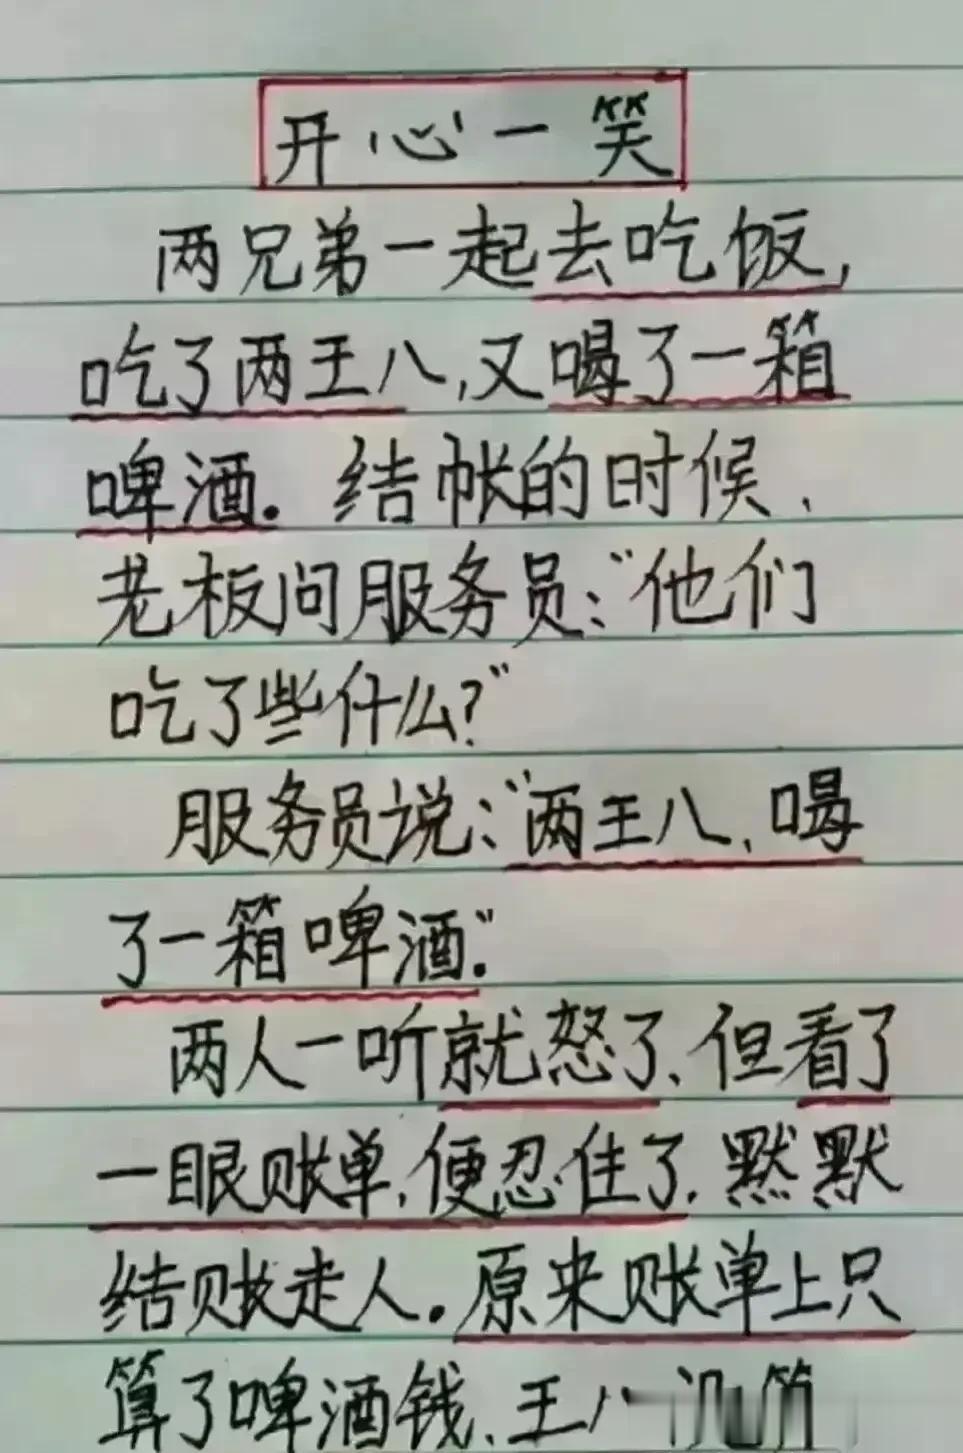 开心一笑
两兄弟一起去吃饭，
吃了两王八，又喝了一箱
啤酒。结帐的时候、
老板问服务员：“他们
吃了些什么？”
服务员说：“两王八、喝
了一箱啤酒”。
两人一听就怒了、但看了
一眼账单，便忍住了．默默
结账走人。原来账单上只
算了啤酒钱、王八